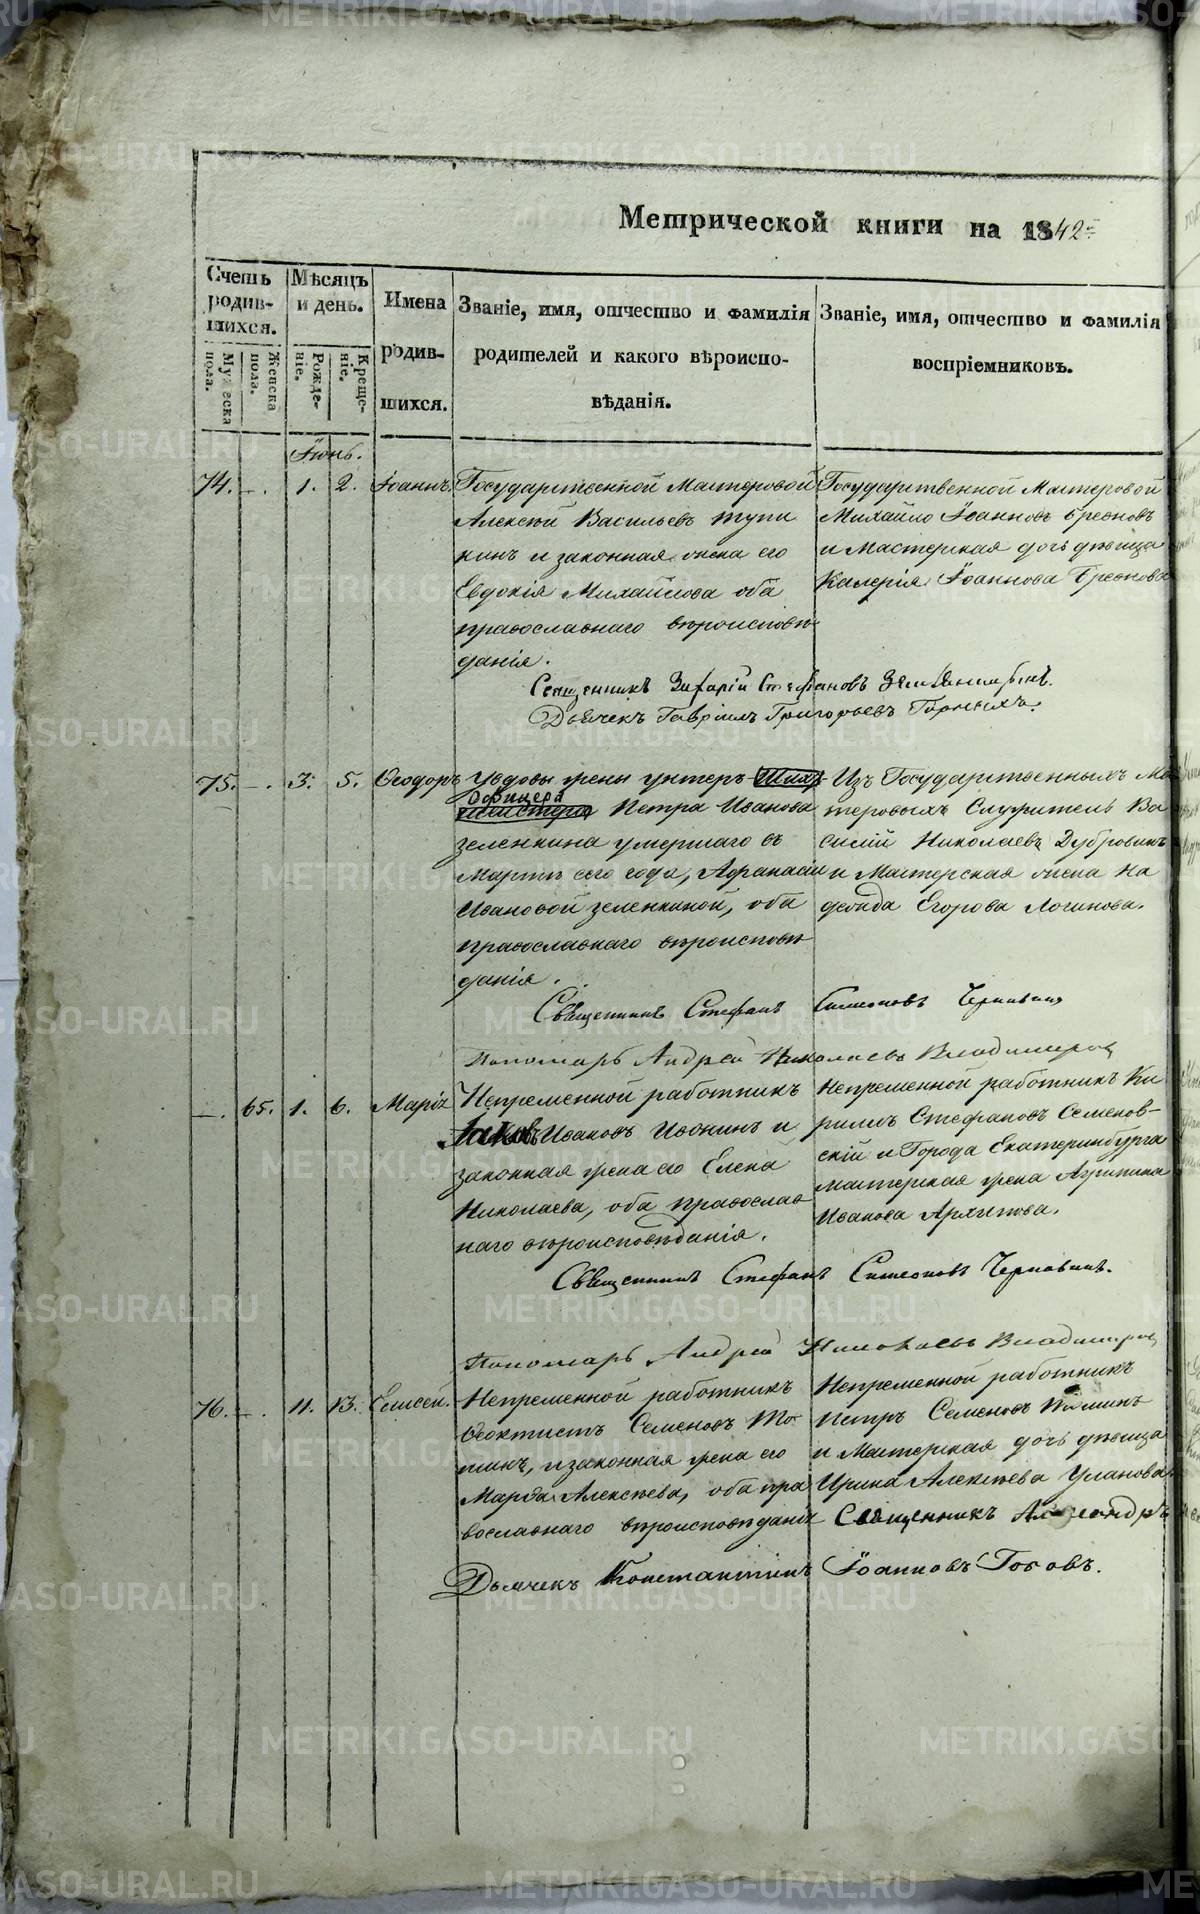 Метрической книги на 1842
Счетъ родившихся.
Мужеска пола.
Женска пола.
Мѣсяцъ и день.
Рожденіе.
Крещеніе.
Имена родившихся.
Званіе, имя, отчество и фамилія
родителей и какого вѣроиспо-
вѣданія.
Званіе, имя, отчество и фамилія
воспріемниковъ.
Іюнь.
74. -. 1. 2. Іоаннъ.
Государственной Мастеровой
Алексѣй Васильевъ Тупи
кинъ и законная жена его
Евдокія Михайлова оба
православнаго вѣроисповѣ
данія.
Государственной Мастеровой
Михайло Іоанновъ
и Мастерская дочь дѣвица
Калерія Іоаннова
Священникъ Захарій Стефановъ
Дьячекъ Гавріилъ Григорьевъ Горныхъ.
75. -. 3. 5. Ѳеодоръ
Увдовы жены унтеръ
офицера Петра Иванова
зеленкина умершаго въ
Мартѣ сего года, Афанасіи
Ивановой зеленкиной, оба
православнаго вѣроисповѣ
данія.
Изъ Государственныхъ Ма
теровыхъ Служитель Ва
силій Николаевъ Дубровинъ
и Мастерская жена На
дежда Егорова Логинова.
Священникъ Стефанъ Симеоновъ Чернавинъ
Пономарь Андрей Николаевъ Владимировъ
-. 65. 1. 6. Марія
Непременной работникъ
Іаковъ Ивановъ Ивонинъ и
законная жена его Елена
Николаева, оба православ
наго вѣроисповѣданія.
Непременной работникъ Ки
рилъ Стефановъ Семенов-
скій и Города Екатеринбурга
мастерская жена Агрипина
Иванова Архипова.
Священникъ Стефанъ Симеоновъ Чернавинъ.
Пономарь Андрей Николаевъ Владимировъ
76. -. 11. 13. Елисей.
Непременной работникъ
Ѳеоктистъ Семеновъ То
минъ, и законная жена его
Марфа Алексѣева, оба пра
вославнаго вѣроисповѣданія
Непременной работникъ
Петръ Семеновъ Томинъ
и Мастерская дочь дѣвица
Ирина Алексѣева Уланова
Священникъ Александръ
Дьячекъ Константинъ Іоанновъ